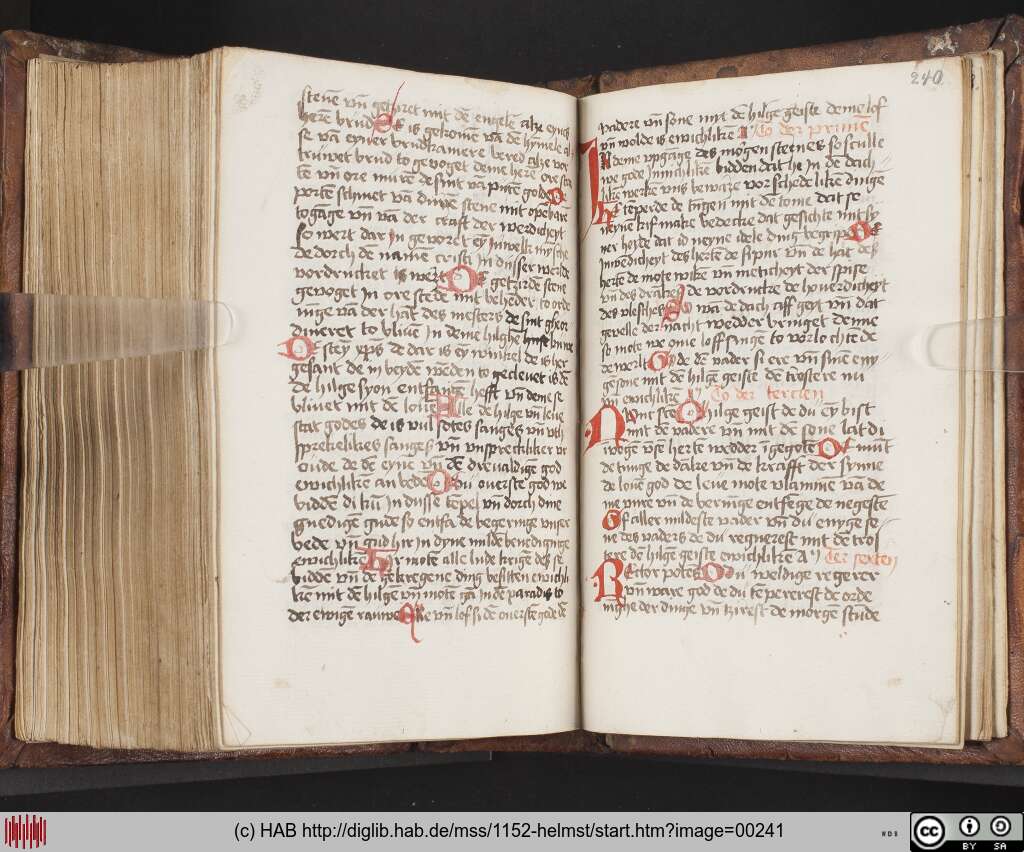 stenē vn̄ gesiret mit dē engele alze eyner
herē brud Se is gekomē vā de hymele al
se vā eyner brudkamere bered alze vor
truwet brud to gevoget deme herē ore stra
te vn̄ ore murē de sint vā purē golde
portē schinet vā dure stene mit opēbarē
togāge vn̄ vā der craft der werdicheyt
so wert dar in gevoret ey Inwelk mynsche
de dorch dē namē cristi In dusser werlde
vordrucket is wert De getzirde stene
gevoget In ore stede mit beheder to orde
nīge vā der hāt des mesters de sint ghor
dineret to blivē In deme hilghē huse
De steȳ xp̄s de dar is ey winkel de is her
gesant de in beydē wedē to geclevet is dē
de hilge syon entfangē hefft vn̄ deme se
blivet mit de love Alle de hilge vn̄ leve
stat godes de is vul sotes sanges vn̄ vth
sprekelikes sanges vn̄ unsprecklikir vr
oude de de eyne vn̄ dē drevaldigē god
ewichlikē an bede O du overste god we
biddē di kū In dusse tēpel vn̄ dorch dine
gnedigē gude so entfa de begeringe unser
bede vn̄ gud hir in dyne milde benedignige
ewichlikē Hir motē alle lude krigē des se
biddē vn̄ de gekregene ding besitten ewichli
ke mit dē hilgē vn̄ mote gā In de paradis to
der ewigē rauwe Ere vn̄ lof si dē overstē gode dē
240
vadere vn̄ sone mit dē hilgē geiste deme lof
vn̄ wolde is ewichlike A To der primē
In deme upgāge des morgen sternes so sculle
we gode Innichlikē bidden dat he In de dach
likē werke uns beware vor schedelikē dinge
He tēperde de tūgen mit de tome dat se
neynē kif make bedecke dat gesichte mit sy
ner heyde dat id neyne idele ding begripe De
Inwēdicheyt des hertē de si pur vn̄ de hat des
hertē de mote wike vn̄ meticheyt der spise
vn̄ des drākes de vordrucke de hoverdicheyt
des vlesches So wā de dach aff geyt vn̄ dat
gevelle de nacht wedder bringet denne
so mote we ome loff singē to vorlochte de
de werlt Gode dē vader si ere vn̄ sinē eny
gē sone mit de hilgē geiste de trostere nu
vn̄ ewichlikē To der tercien
Nu kūm ste O hilge geist de du eȳ bist
mit de vadere vn̄ mit de sone lat di
vogē uſe herte wedder īgegotē De mūt
de tūge de dācke vn̄ de krafft der synne
de lovē god de leve mote vlāmmē vā de
me vure vn̄ de berninge entfēge de negestē
O aller mildeste vader vn̄ du enyge so
ne des vaders de du regnerest mit de tros
tere dē hilgē geiste ewichlikē A Der sexten
Rector potēs O du weldige regerer
vn̄ ware god de du tēpererest de orde
ninge der dinge vn̄ tzirest de morgē stūde
(c) HAB http://diglib.hab.de/mss/1152-helmst/start.htm?image=00241
WDB
cc
BY SA